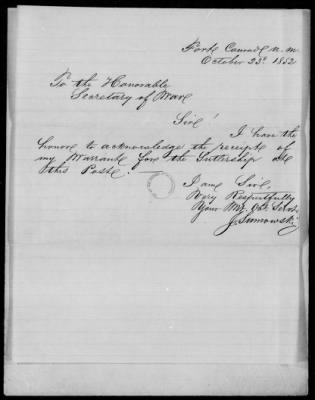 Fort Conrad N. M.
October 23d 1852
To the Honorable
Secretary of War
Sir!
I have the
honor to acknowledge the receipt of
my Warrant for the Sutlership at
this Post.
I am Sir,
Very Respectfully
Your Mo. Obt. Servt.